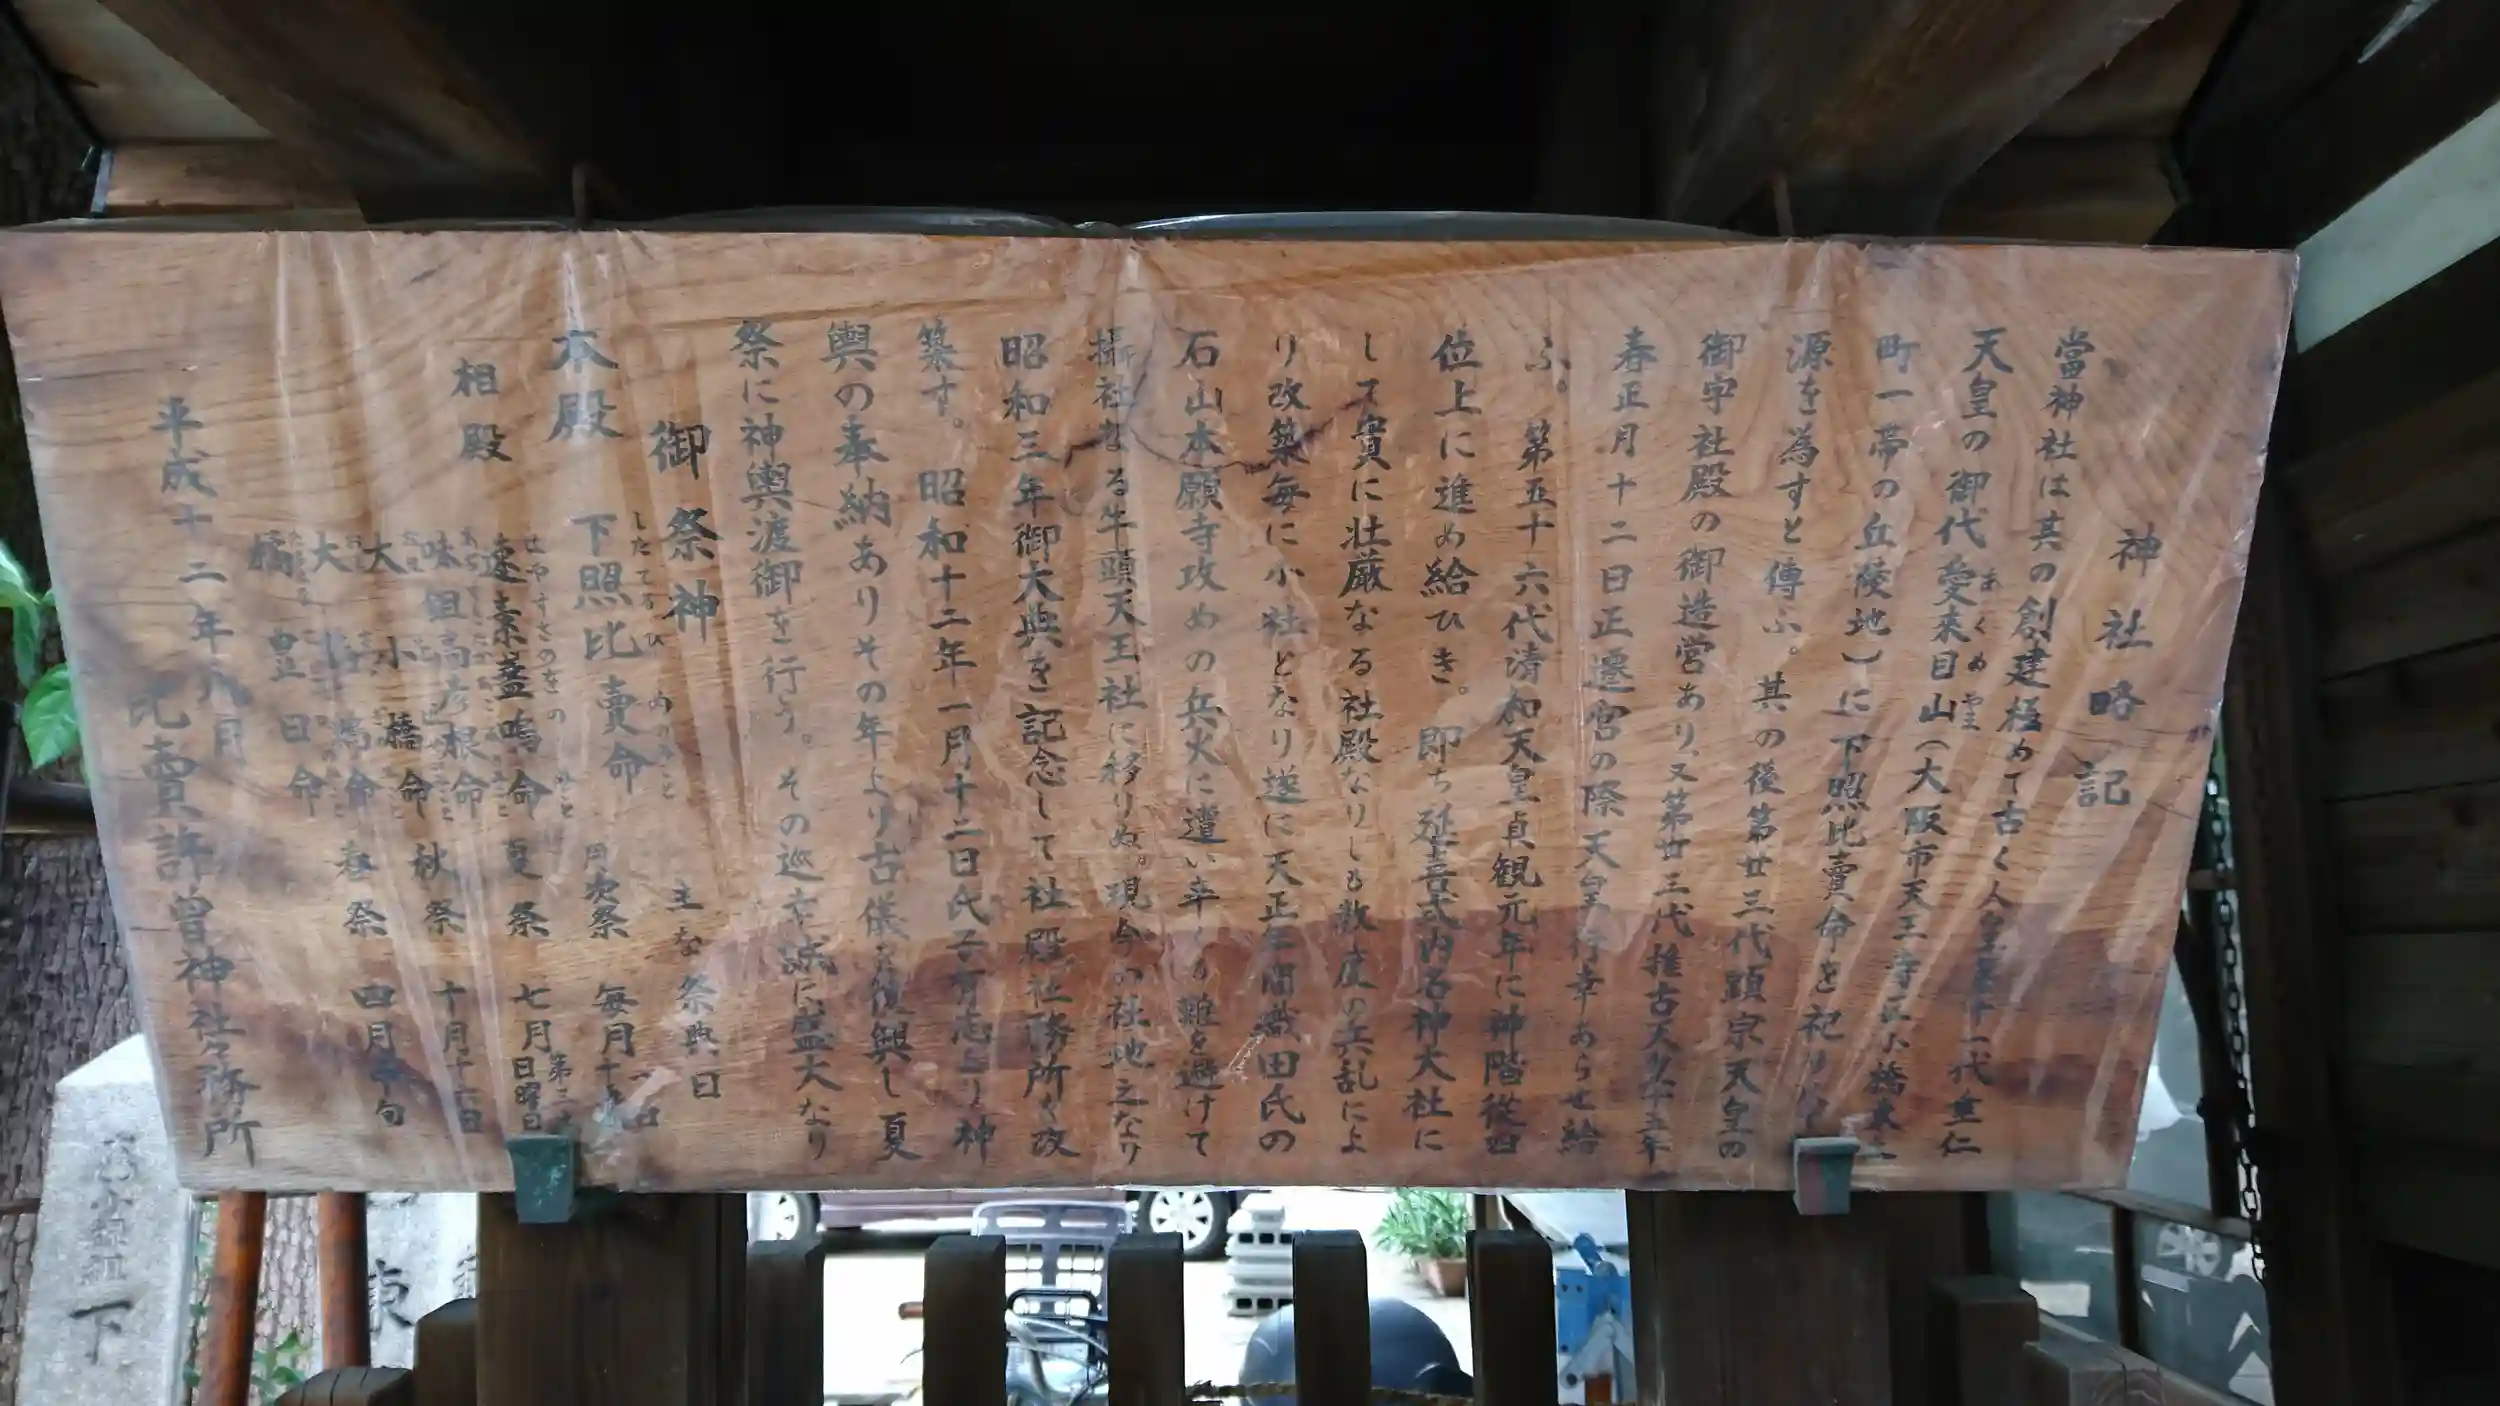 神社略記
當神社は其の創建極めて古く人皇第十一代垂仁
天皇の御代愛来目山(大阪市天王寺区小橋東之
あくめ
町一帯の丘陵地)に下照比賣命を祀り
源を為すと傳ふ。其の後第廿三代顕宗天皇の
御宇社殿の御造営あり。又第廿三代推古天皇十五年
春正月十二日正遷宮の際天皇行幸あらせ給
ふ。第五十六代清和天皇貞観元年に神階從四
位上に進め給ひき。即ち延喜式内名神大社に
して實に壮厳なる社殿なりしも数度の兵乱によ
り改築毎に小社となり遂に天正年間織田氏の
石山本願寺攻めの兵火に遭い幸くも難を避けて
攝社なる牛頭天王社に移りぬ。現今の社地之なり
昭和三年御大典を記念して社殿社務所を改
築す。昭和十二年一月十二日氏子有志より神
輿の奉納ありその年より古儀を復興し夏
祭に神輿渡御を行う。その巡幸誠に盛大なり
御祭神 主な祭典日
本殿 下照比賣命 月次祭 毎月十
したてるひめのみこと
相殿 速素盞嗚命 夏祭 七月第三日曜日
はやすさのをのみこと
味耜高彦根命 秋祭 十月十六日
大小橋命 春祭 四月中旬
大
橘豊日命
平成十二年九月
比賣許曽神社々務所
下
東